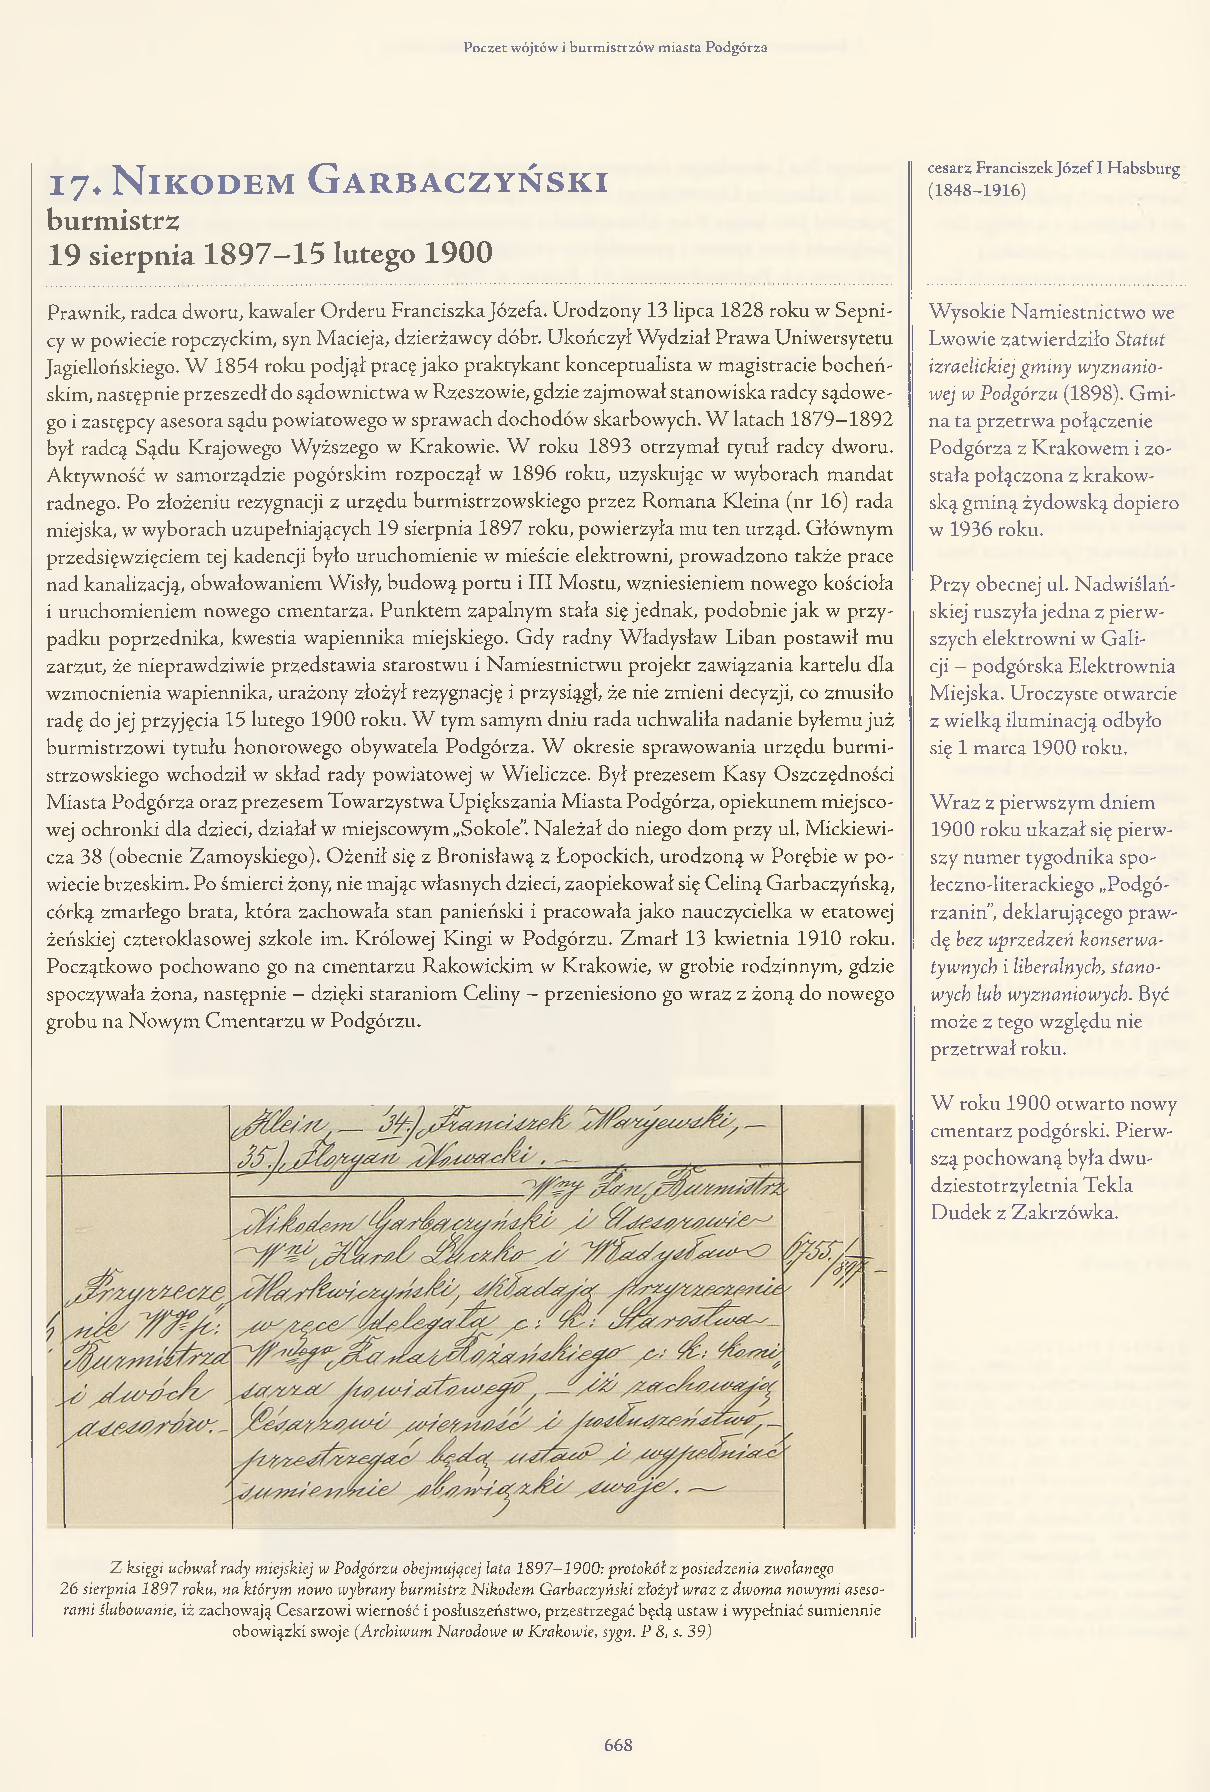 Poczet wójtów i burmistrzów miasta Podgórza
17. Nikodem Garbaczyński
burmistrz
19 sierpnia 1897–15 lutego 1900
Prawnik, radca dworu, kawaler Orderu Franciszka Józefa. Urodzony 13 lipca 1828 roku w Sepni-
cy w powiecie ropczyckim, syn Macieja, dzierżawcy dóbr. Ukończył Wydział Prawa Uniwersytetu
Jagiellońskiego. W 1854 roku podjął pracę jako praktykant konceptualista w magistracie bocheń-
skim, następnie przeszedł do sądownictwa w Rzeszowie, gdzie zajmował stanowiska radcy sądowe-
go i zastępcy asesora sądu powiatowego w sprawach dochodów skarbowych. W latach 1879–1892
był radcą Sądu Krajowego Wyższego w Krakowie. W roku 1893 otrzymał tytuł radcy dworu.
Aktywność w samorządzie pogórskim rozpoczął w 1896 roku, uzyskując w wyborach mandat
radnego. Po złożeniu rezygnacji z urzędu burmistrzowskiego przez Romana Kleina (nr 16) rada
miejska, w wyborach uzupełniających 19 sierpnia 1897 roku, powierzyła mu ten urząd. Głównym
przedsięwzięciem tej kadencji było uruchomienie w mieście elektrowni, prowadzono także prace
nad kanalizacją, obwałowaniem Wisły, budową portu i III Mostu, wzniesieniem nowego kościoła
i uruchomieniem nowego cmentarza. Punktem zapalnym stała się jednak, podobnie jak w przy-
padku poprzednika, kwestia wapiennika miejskiego. Gdy radny Władysław Liban postawił mu
zarzut, że nieprawdziwie przedstawia starostwu i Namiestnictwu projekt zawiązania kartelu dla
wzmocnienia wapiennika, urażony złożył rezygnację i przysiągł, że nie zmieni decyzji, co zmusiło
radę do jej przyjęcia 15 lutego 1900 roku. W tym samym dniu rada uchwaliła nadanie byłemu już
burmistrzowi tytułu honorowego obywatela Podgórza. W okresie sprawowania urzędu burmi-
strzowskiego wchodził w skład rady powiatowej w Wieliczce. Był prezesem Kasy Oszczędności
Miasta Podgórza oraz prezesem Towarzystwa Upiększania Miasta Podgórza, opiekunem miejsco-
wej ochronki dla dzieci, działał w miejscowym „Sokole”. Należał do niego dom przy ul. Mickiewi-
cza 38 (obecnie Zamoyskiego). Ożenił się z Bronisławą z Łopockich, urodzoną w Porębie w po-
wiecie brzeskim. Po śmierci żony, nie mając własnych dzieci, zaopiekował się Celiną Garbaczyńską,
córką zmarłego brata, która zachowała stan panieński i pracowała jako nauczycielka w etatowej
żeńskiej czteroklasowej szkole im. Królowej Kingi w Podgórzu. Zmarł 13 kwietnia 1910 roku.
Początkowo pochowano go na cmentarzu Rakowickim w Krakowie, w grobie rodzinnym, gdzie
spoczywała żona, następnie – dzięki staraniom Celiny – przeniesiono go wraz z żoną do nowego
grobu na Nowym Cmentarzu w Podgórzu.
Klein, — 34.) Franciszek Maryewski, —
35.) Floryan Nowacki. —
Wny Pan Burmistrz
Nikodem Garbaczyński i Asesorowie
Wni Karol Łuczko i Władysław
Markwiczyński, składają przyrzeczenie
w ręce delegata c: k: Starostwa
Wielego Pana Rożańskiego c: k: komi„
sarza powiatowego, — iż zachowają
Cesarzowi wierność i posłuszeństwo, —
przestrzegać będą ustaw i wypełniać
sumiennie obowiązki swoje. —
Przyrzecze„
nie Wgo p:
Burmistrza
i dwóch
asesorów. -
6755./897 –
Z księgi uchwał rady miejskiej w Podgórzu obejmującej lata 1897–1900: protokół z posiedzenia zwołanego
26 sierpnia 1897 roku, na którym nowo wybrany burmistrz Nikodem Garbaczyński złożył wraz z dwoma nowymi aseso-
rami ślubowanie, iż zachowają Cesarzowi wierność i posłuszeństwo, przestrzegać będą ustaw i wypełniać sumiennie
obowiązki swoje (Archiwum Narodowe w Krakowie, sygn. P 8, s. 39)
cesarz Franciszek Józef I Habsburg
(1848–1916)
Wysokie Namiestnictwo we
Lwowie zatwierdziło Statut
izraelickiej gminy wyznanio-
wej w Podgórzu (1898). Gmi-
na ta przetrwa połączenie
Podgórza z Krakowem i zo-
stała połączona z krakow-
ską gminą żydowską dopiero
w 1936 roku.
Przy obecnej ul. Nadwiślań-
skiej ruszyła jedna z pierw-
szych elektrowni w Gali-
cji – podgórska Elektrownia
Miejska. Uroczyste otwarcie
z wielką iluminacją odbyło
się 1 marca 1900 roku.
Wraz z pierwszym dniem
1900 roku ukazał się pierw-
szy numer tygodnika spo-
łeczno-literackiego „Podgó-
rzanin”, deklarującego praw-
dę bez uprzedzeń konserwa-
tywnych i liberalnych, stano-
wych lub wyznaniowych. Być
może z tego względu nie
przetrwał roku.
W roku 1900 otwarto nowy
cmentarz podgórski. Pierw-
szą pochowaną była dwu-
dziestotrzyletnia Tekla
Dudek z Zakrzówka.
668